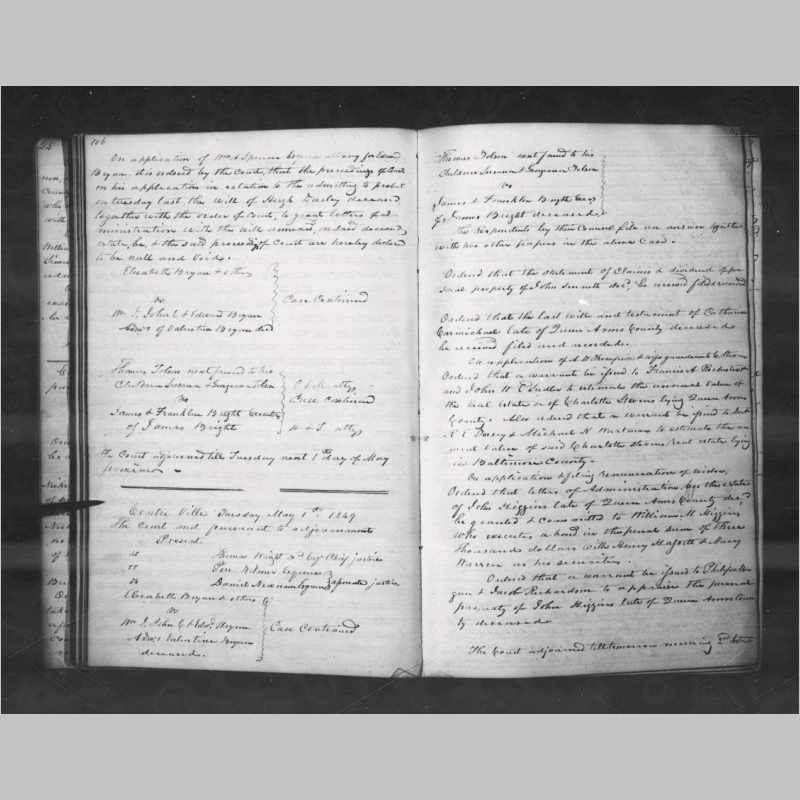 106
On application of Wm. A Spencer Esquire attorney for Edward
Bryan. it is ordered by the Court, that the proceedings of Court
on his application in relation to the admitting to probat
on Tuesday last, the will of Hugh Darley deceased
together with the order of Court, to grant letters of ad-
ministration with the will annexed, on said deceased,
estate, be, & the said proceedings of Court are hereby declared
to be null and void.
Elizabeth Bryan & others
vs
Wm. J. John C & Edward Bryan
Adxrs of Valentine Bryan decd
Case Continued
Thomas Tolson next friend to his
Children Susan & Tolson
vs
James & Franklin Bright
of James Bright
atty.
Case continued
atty.
The Court adjourned till Tuesday next 1st day of May
proximo
Centre Ville Tuesday May 1st 1849
The Court met pursuant to adjournment
Present
Thomas Wright 3d Esqr Chief justice
Pere Wilmer Esquire
Daniel Newnam Esquire
associate justices
Elizabeth Bryan & others
vs
Wm. J. John C & Edwd. Bryan
Adxrs Valentine Bryan
deceased.
Case Continued
Thomas Tolson next friend to his
Children Susanna & Tolson
vs
James & Franklin Bright
of James Bright deceased
The respondents by their Counsel file an answer together
with his other papers in the above Case.
Ordered that the statement of Claims & dividend
personal property of John decd. be received filed & recorded
Ordered that the last will and testament of Catharine
Carmichael late of Queen Anns County deceased
be received filed and recorded.
On application of
Ordered that a warrant be issued to Francis A
and John W. E. Sudler to estimate the annual value of
the real estate of Charlotte Stevens lying Queen Anns
County. Also ordered that a warrant be issued to
& Michael to estimate the an-
nual value of said Charlotte Stevens real estate lying
in Baltimore County.
On application & filing renunciation of widow,
Ordered that letters of Administration on the estate
of John Higgins late of Queen Anns County decd.
be granted & Committed to William H. Higgins
who executes a bond in the penal sum of three
thousands dollars with Henry & Henry
Warren as his securities.
Ordered that a warrant be issued to Philip
& Jacob Richardson to appraise the personal
property of John Higgins late of Queen Anns Coun-
ty deceased.
The Court adjourned till tomorrow morning